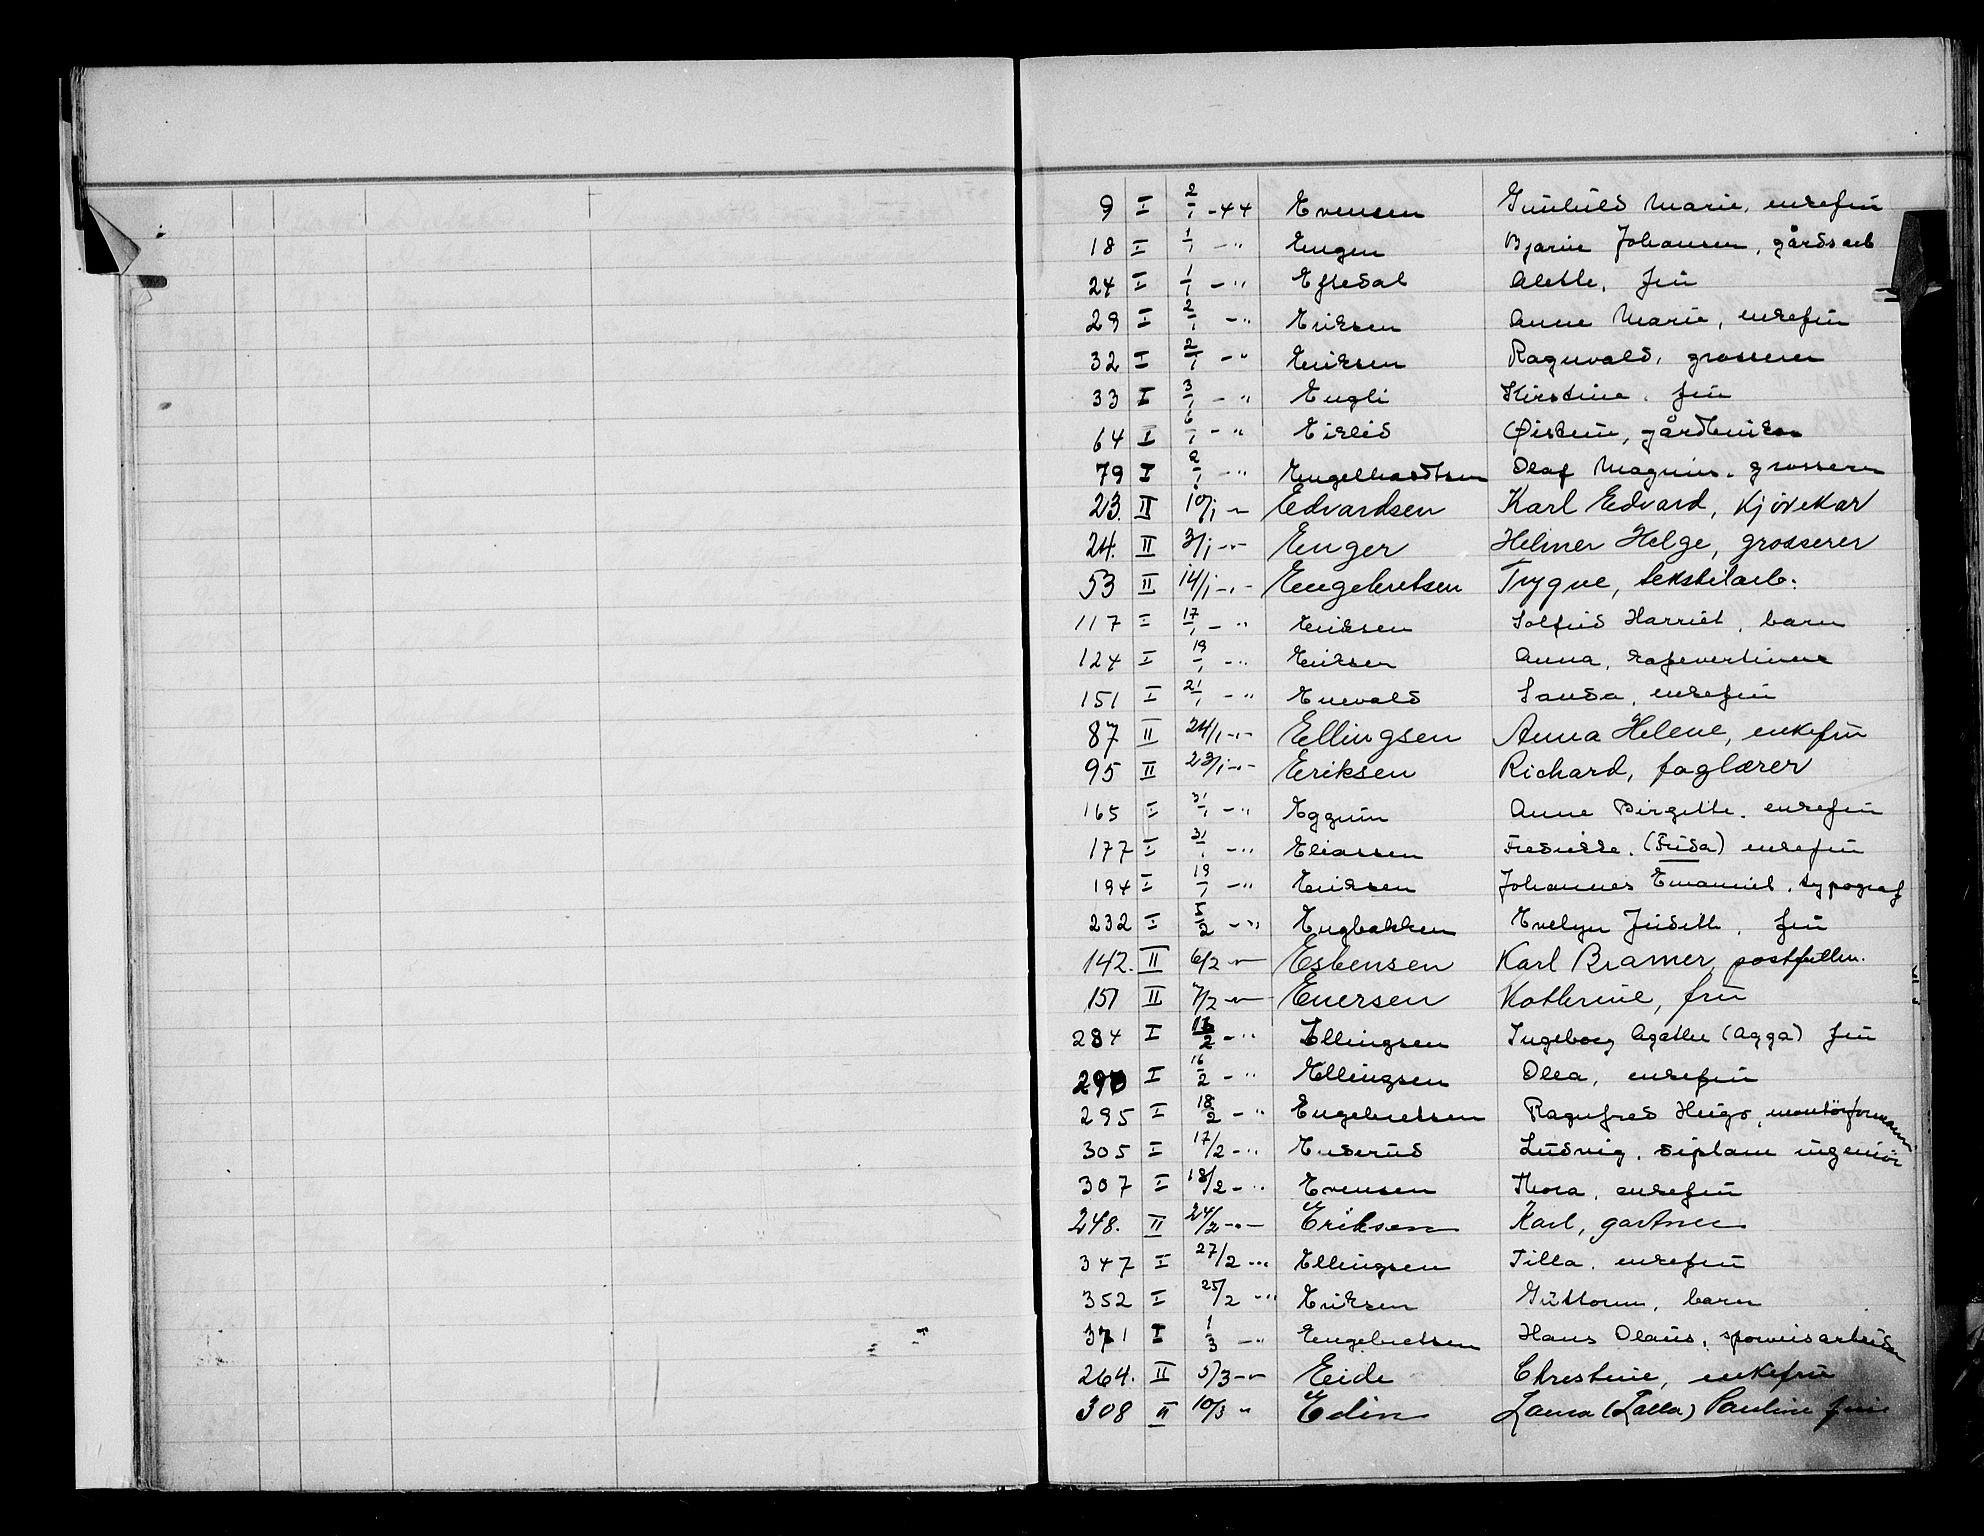 9 I 2/1 -44 Evensen Gunhild Marie, enkefru
18 I 1/1 -" Engen Bjarne Johansen, gårdsarb
24 I 1/1 -" Eftedal Alette, fru
29 I 2/1 -" Eriksen Anne Marie, enkefru
32 I 2/1 -" Eriksen Ragnvald, grosserer
33 I 3/1 -" Engli Kirstine, fru
64 I 6/1 -" Eiklid Øistein, gårdbruker
79 I 2/1 -" Engelhardtsen Olaf Magnus, grosserer
23. II 10/1 -" Edvardsen Karl Edvard, kjørekar
24. II 3/1 -"- Enger Helmer Helge, grosserer
53 II 14/1 -"- Engebretsen Trygve, tekstilarb.
117 I 17/1 -" Eriksen Solfrid Harriet, barn
124 I 19/1 -" Eriksen Anna, kafevertinne
151 I 21/1 -" Enevald Sanda, enkefru
87 II 24/1 -"- Ellingsen Anna Helene, enkefru
95 II 23/1 -"- Eriksen Richard, faglærer
165 I 31/1 -" Eggum Anne Birgitte, enkefru
177 I 31/1 -" Eliassen Fredrikke, (Frida) enkefru
194 I 19/1 -" Eriksen Johannes Emanuel, typograf
232 I 5/2 -" Engbakken Evelyn Judith, fru
142. II 6/2 -" Esbensen Karl Bramer, postfullm.
151 II 7/2 -"- Enersen Kathrine, fru
284 I /2 -" Ellingsen Ingeborg Agathe (Agga) fru
290 I 16/2 -" Ellingsen Olea, enkefru
295 I 18/2 -" Engebretsen Ragnfred Hugo, montørformann
305 I 17/2 -" Enderud Ludvig, diplom ingeniør
307 I 18/2 -" Evensen Thora, enkefru
248. II 24/2 -"- Eriksen Karl, gartner
347 I 27/2 -" Ellingsen Tilla, enkefru
352 I 25/2 -" Eriksen Guttorm, barn
371 I 1/3 -" Engebretsen Hans Olaus, sporveisarbeider
264. II 5/3 -"- Eide Christine, enkefru
308 II 10/3 " Edin Laura (Lalla) Pauline fru